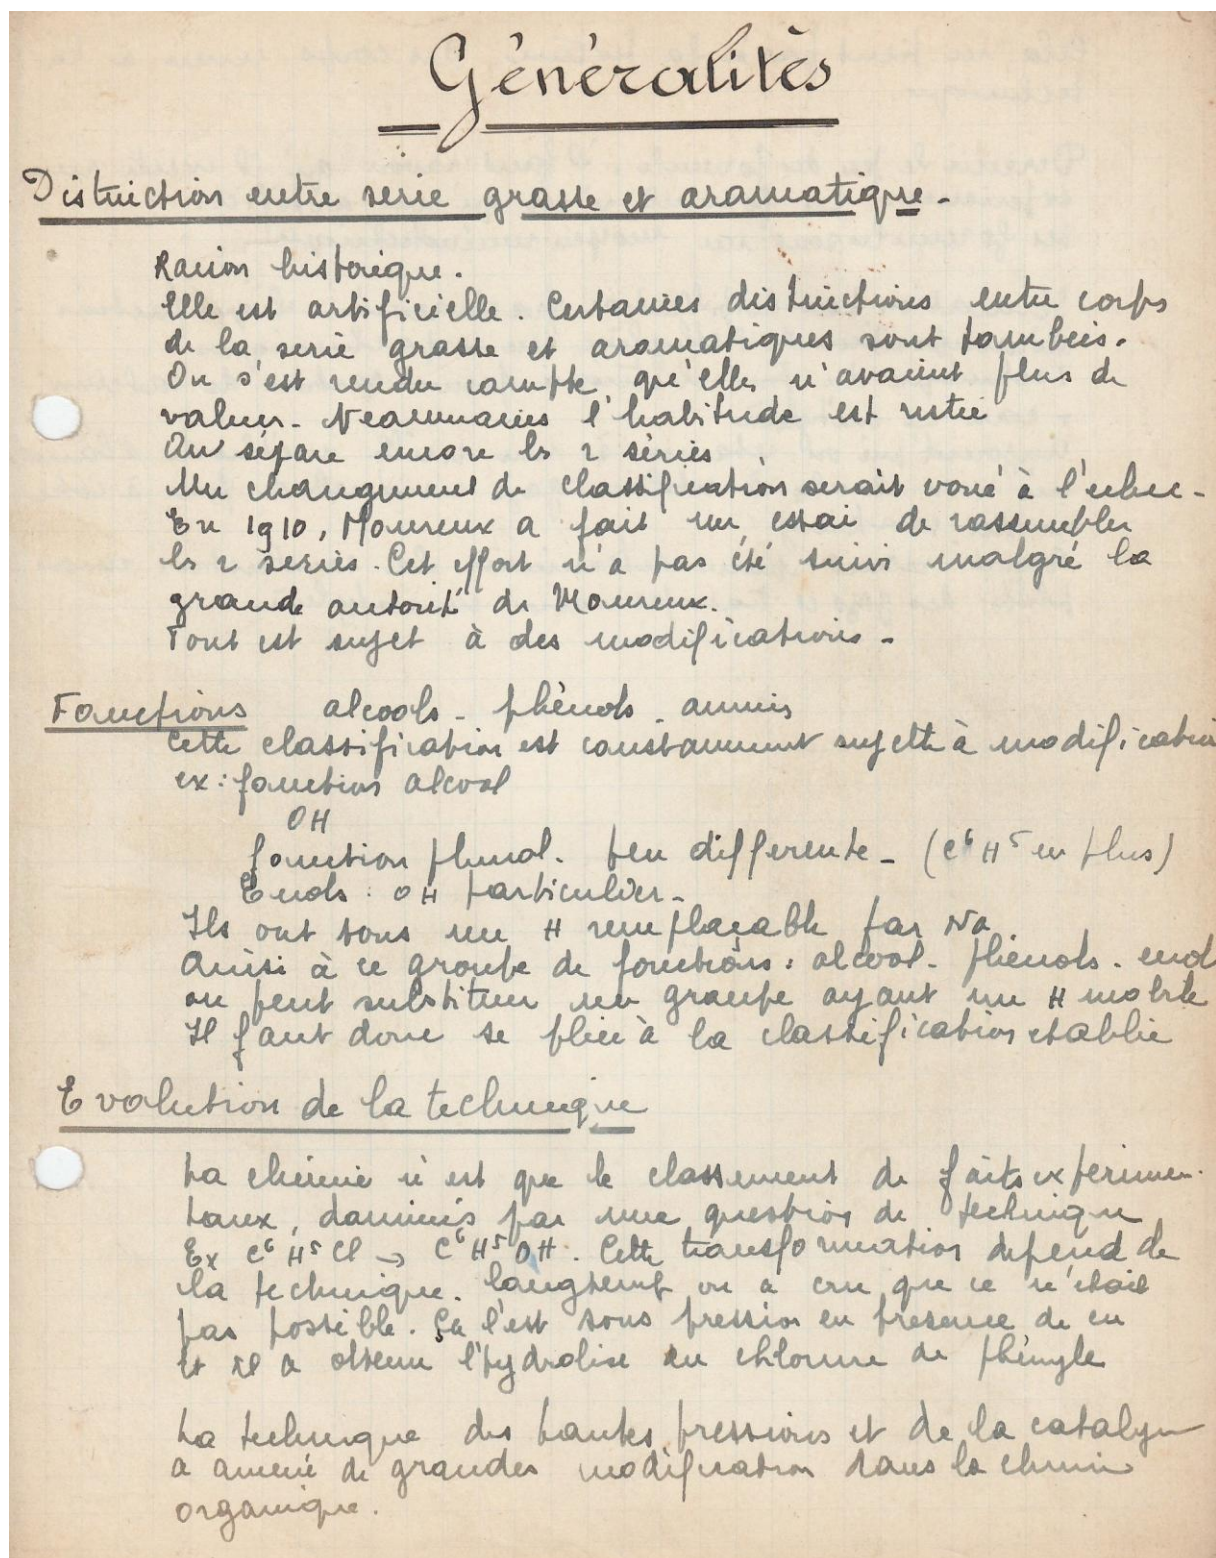 Généralités
Distinction entre serie grasse et aromatique.
Raison historique.
Elle est artificielle. Certaines distinctions entre corps
de la serie grasse et aromatiques sont tombées.
On s'est rendu compte qu'elles n'avaient plus de
valeur. Neanmoins l'habitude est restée
On sépare encore les 2 séries
Un changement de classification serait voué à l'échec.
En 1910, Moureux a fait un essai de rassembler
les 2 series. Cet effort n'a pas été suivi malgré la
grande autorité de Moureux.
Tout est sujet à des modifications.
Fonctions alcools - phénols - amines
Cette classification est constamment sujette à modification
ex: fonction alcool
OH
fonction phenol. peu differente - (C⁶H⁵ en plus)
Enols : OH particulier.
Ils ont tous un H remplaçable par Na.
Ainsi à ce groupe de fonctions : alcool - phénols - enol
on peut substituer un groupe ayant un H mobile
Il faut donc se plier à la classification etablie
Evolution de la technique
La chimie n'est que le classement de faits experimen-
taux, dominés par une question de technique
Ex C⁶H⁵Cl → C⁶H⁵OH. Cette transformation depend de
la technique. Longtemps on a cru que ce n'etait
pas possible. Ça l'est sous pression en presence de cu
et a obtenu l'hydrolise du chlorure de phényle
La technique des hautes pressions et de la catalyse
a amené de grandes modification dans la chimie
organique.